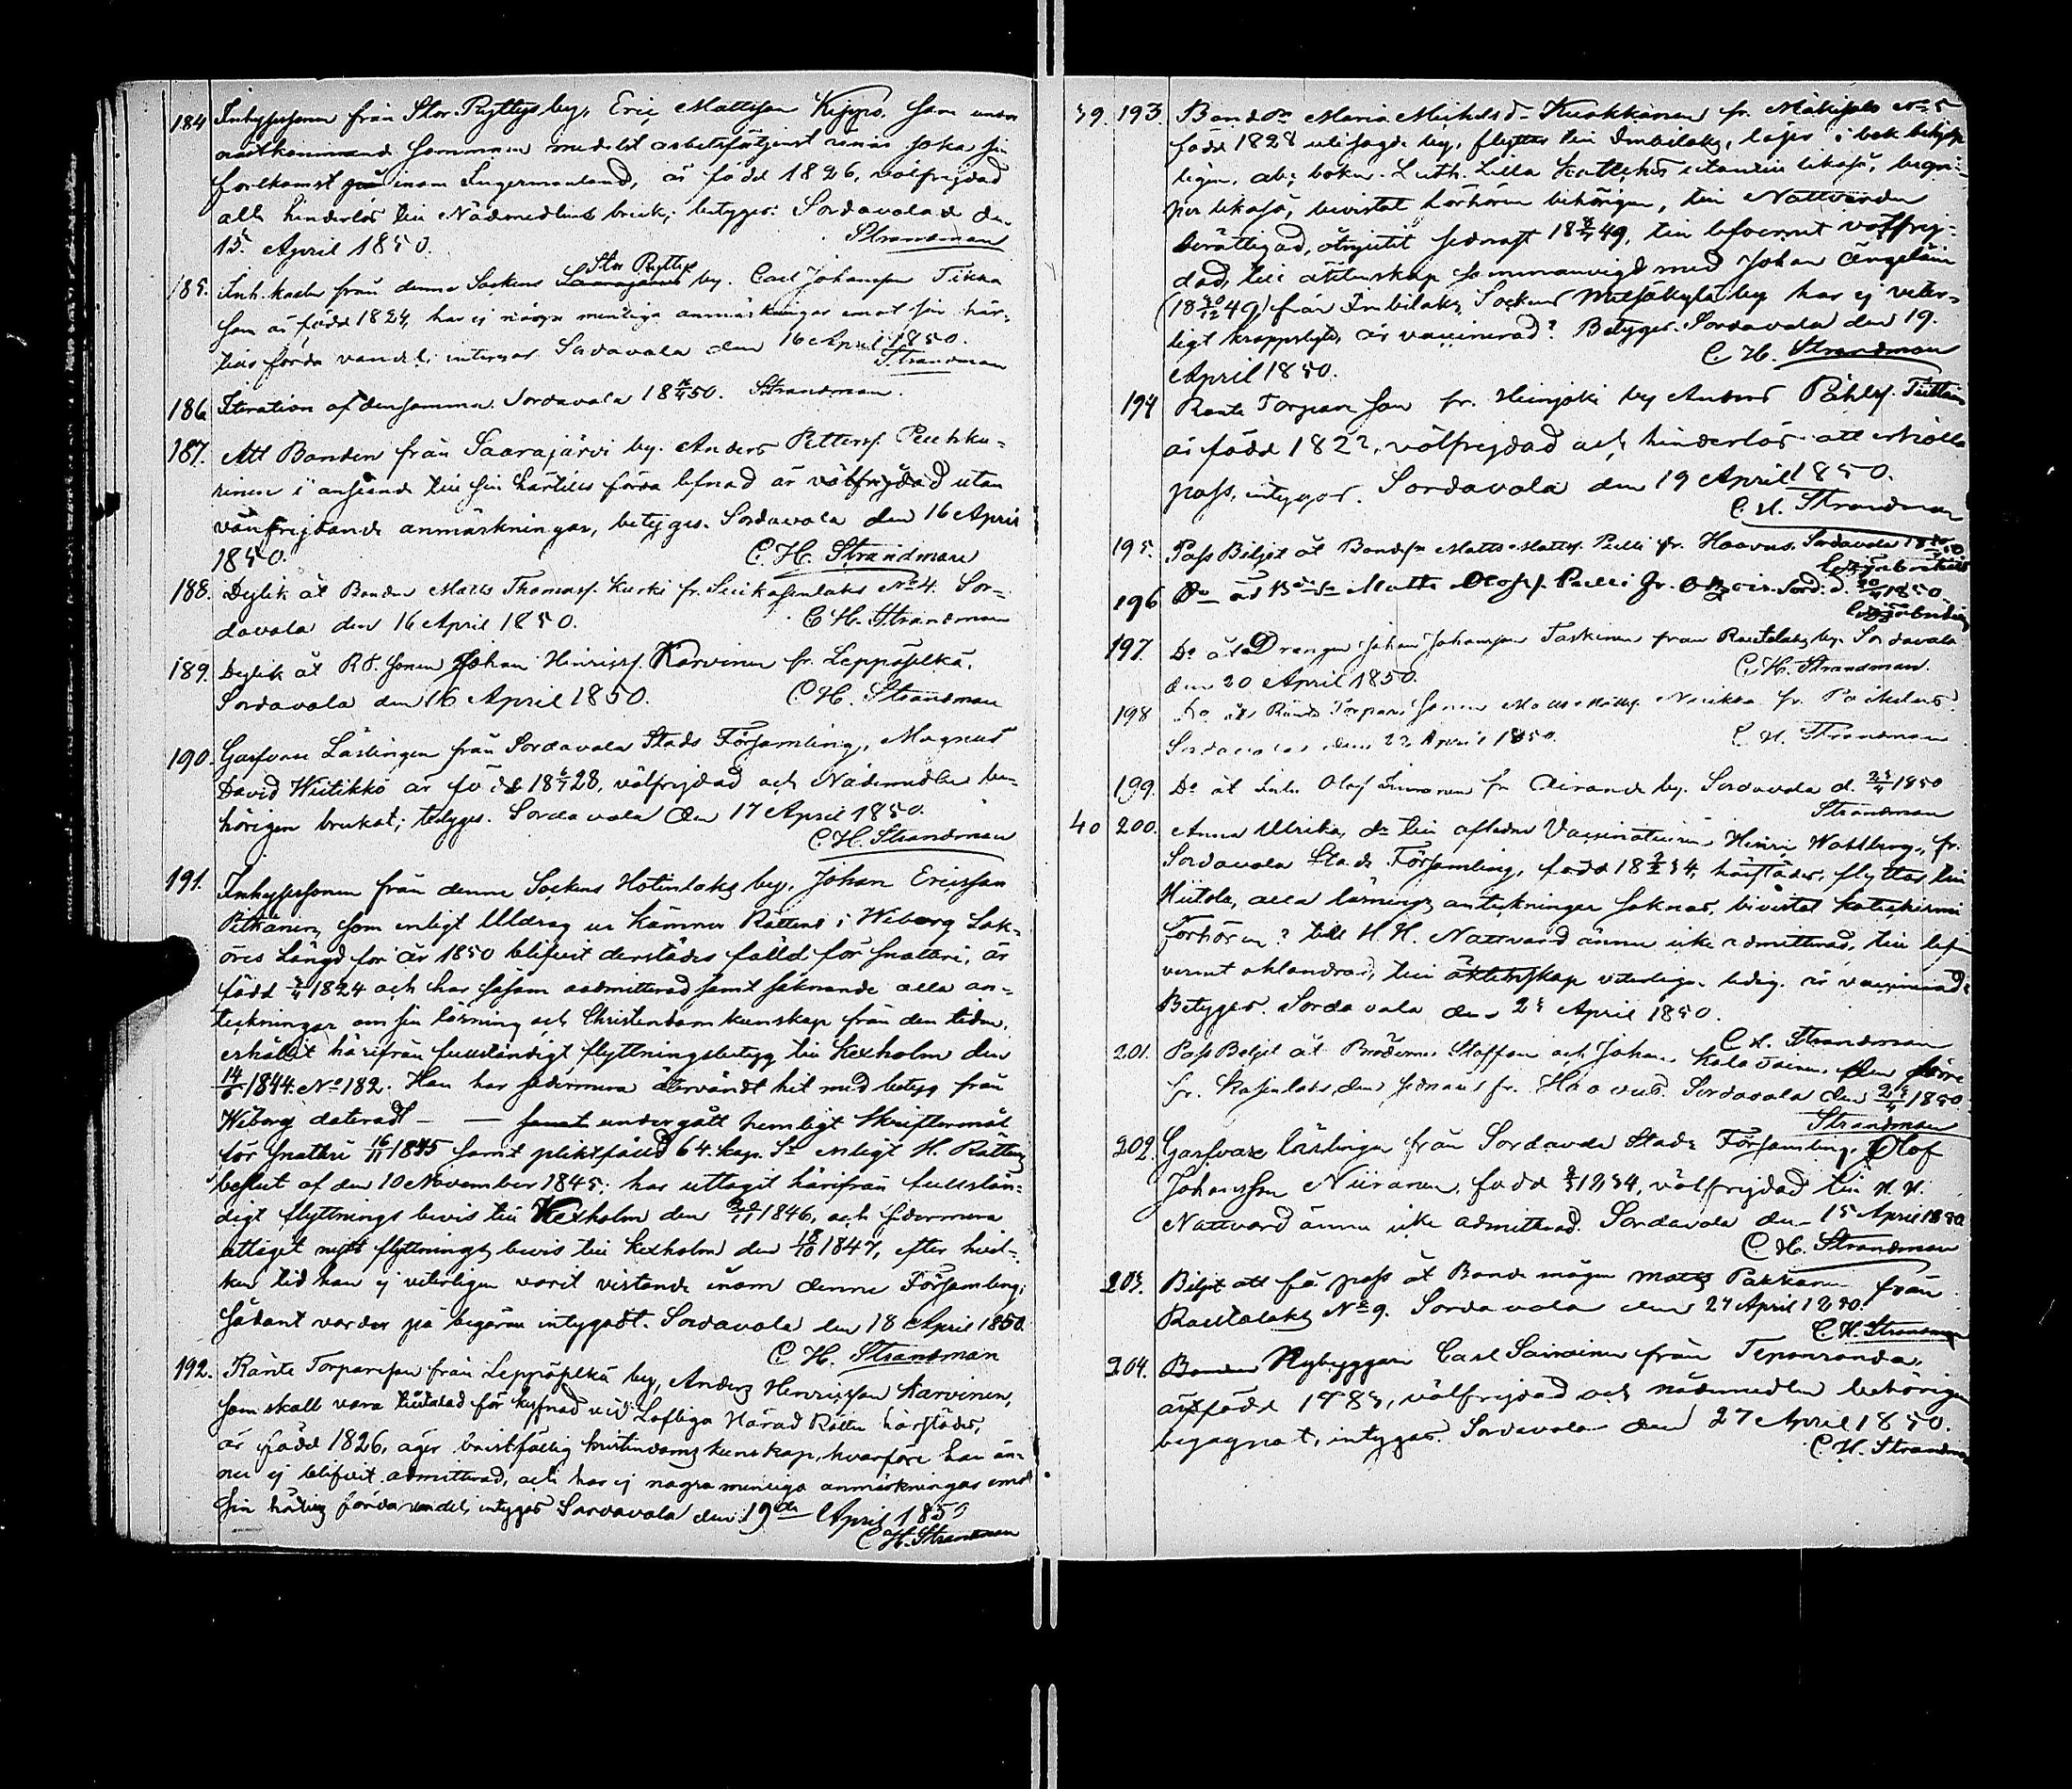 184 Inhysessonen från Stor Ryttys by, Eric Mattsson Kippo, som under
nästkommande sommaren medelst arbetsförtjenst ämnar söka sin
forlkomst inom Ingermanland, är född 1826, välfrejdad
och hinderlös till Nådemedlens bruk; betyges. Sordavala d. den
15 April 1850. Strandman
185. Inh. karln från denna Sockens Stor Ryttys by. Carl Johansson Tikka
som är född 1824, har ej några menliga anmärkningar emot sin här-
tills förda vandel; intygas Sordavala den 16 April 1850.
Strandman
186 Iteration af densamma. Sordavala 18 16/4 50. Strandman.
187. Att Bonden från Saarajärvi by. Anders Petterss. Peuhku-
rinen i anseende till sin härtills förda lefnad är välfrejdad utan
vanfrejdande anmärkningar, betyges. Sordavala den 16 April
1850. C. H. Strandman
188. Dylik åt Bonden Matts Thomass. Kurki fr. No 4. Sor-
davala den 16 April 1850. C. H. Strandman
189. Dylik åt R.T. sonen Johan Hinricss. Karvinen fr. Leppäselkä.
Sordavala den 16 April 1850. C. H. Strandman
190. Garfvare Lärlingen från Sordavala Stads Församling, Magnus
David Wiitikkö är född 18 6/7 28, välfrejdad och Nådemedlen be-
hörigen brukat; betyges. Sordavala den 17 April 1850.
C. H. Strandman
191. Inhysessonen från denna Sockens Hotinlaks by, Johan Ericsson
Pitkänen, som enligt Utdrag ur Kämners Rättens i Wiborg Sak-
öres Längd för år 1850 blifvit derstädes fälld för snatteri, är
född 1824 och har såsom oadmitterad samt saknande alla an-
teckningar om sin läsning och Christendoms kunskap från den tiden,
erhållit härifrån fullständigt flyttningsbetyg till Kexholm den
14/6 1844. No 182. Han har sedermera återvändt hit med betyg från
Wiborg dateradt — — samt undergått hemligt Skriftermål
för snatteri 16/11 1845 samt pliktfälld 64 kop. Sr enligt H. Rättens
beslut af den 10 November 1845; har uttagit härifrån fullstän-
digt flyttnings bevis till Kexholm den 1846, och sedermera
uttaget nytt flyttnings bevis till Kexholm den 18/10 1847, efter hvil-
ken tid han ej veterligen varit vistande inom denna Församling;
Sådant varder på begäran intygadt. Sordavala den 18 April 1850.
C. H. Strandman
192. Ränte Torpareson från Leppäselkä by, Anders Henricsson Karvinen,
som skall vara tilltalad för vid Lofliga Härads Rätten härstädes,
är född 1826, äger bristfällig kristendoms kunskap, hvarföre han än-
nu ej blifvit admitterad, och har ej några menliga anmärkningar emot
sin härtills förda vandel, intygas Sordavala den 19de April 1850
C. H. Strandman
39. 193. Bonded:n Maria Michelsd:r Kuokkanen fr. No 5
född 1828 i by, flyttar till Imbilaks, läser i bok behjelp-
ligen, abc boken. Luth. Lilla Katekes utantill likaså, begre-
per likaså, bevistat Förhören behörigen, till Nattvarden
berättigad, åtnjutit sednast 18 49, till lefvernet välfrej-
dad, till äktenskap sammanvigd med Johan
(18 49) från Imbilaks Sockens by har ej veter-
ligt kroppslyte, är vaccinerad? Betyges. Sordavala den 19.
April 1850. C. H. Strandman
194 Ränte Torpare son fr. Heinjoki by Anders Påhlss.
är född 1822, välfrejdad och hinderlös att erhålla
pass, intygas. Sordavala den 19 April 1850.
C. H. Strandman
195. Pass Biljet åt Bondes:n Matts Mattss. Pulli fr. Haavus. Sordavala 1850
196 Do åt Matts Olofss. Pulli fr. Sord. d. 20/4 1850
197. Do åt Drengen Johan Johansson Taskinen från Rautalaks by. Sordavala
den 20 April 1850. C. H. Strandman.
198 Do åt Ränte Torpare sonen Matts Mattss. fr.
Sordavala den 22 April 1850. C. H. Strandman
199. Do åt Inh. Olof fr. Airanne by. Sordavala d. 23/4 1850
Strandman
40 200. Anna Ulrika, dr till aflidne Vaccinateuren Hinric Wahlberg, fr.
Sordavala Stads Församling, född 18 34, härstädes, flyttar till
Hiitola, alla läsnings anteckningar saknas, bivistat Katechismi
Förhören? till H. H. Nattvard ännu icke admitterad, till lef-
vernet oklandrad, till äktenskap veterligen ledig, är vaccinerad:
Betyges. Sordavala den 23 April 1850.
C. H. Strandman
201. Pass Beljet åt Bröderne Staffan och Johan den förre
fr. den sednare fr. Haavus. Sordavala den 1850.
Strandman
202. Garfvare lärlingen från Sordavala Stads Församling, Olof
Johansson Niiranen, född 1834, välfrejdad till H. H.
Nattvard ännu icke admitterad. Sordavala den 15 April 1850
C. H. Strandman
203. Biljet att få pass åt Bonde mågen Matts Pakkanen från
Rautalaks No 9. Sordavala den 27 April 1850.
C. H. Strandman
204. Bonden Nybyggaren Carl från
är född 1783, välfrejdad och nådemedlen behörigen
begagnat, intygas. Sordavala den 27 April 1850.
C. H. Strandman